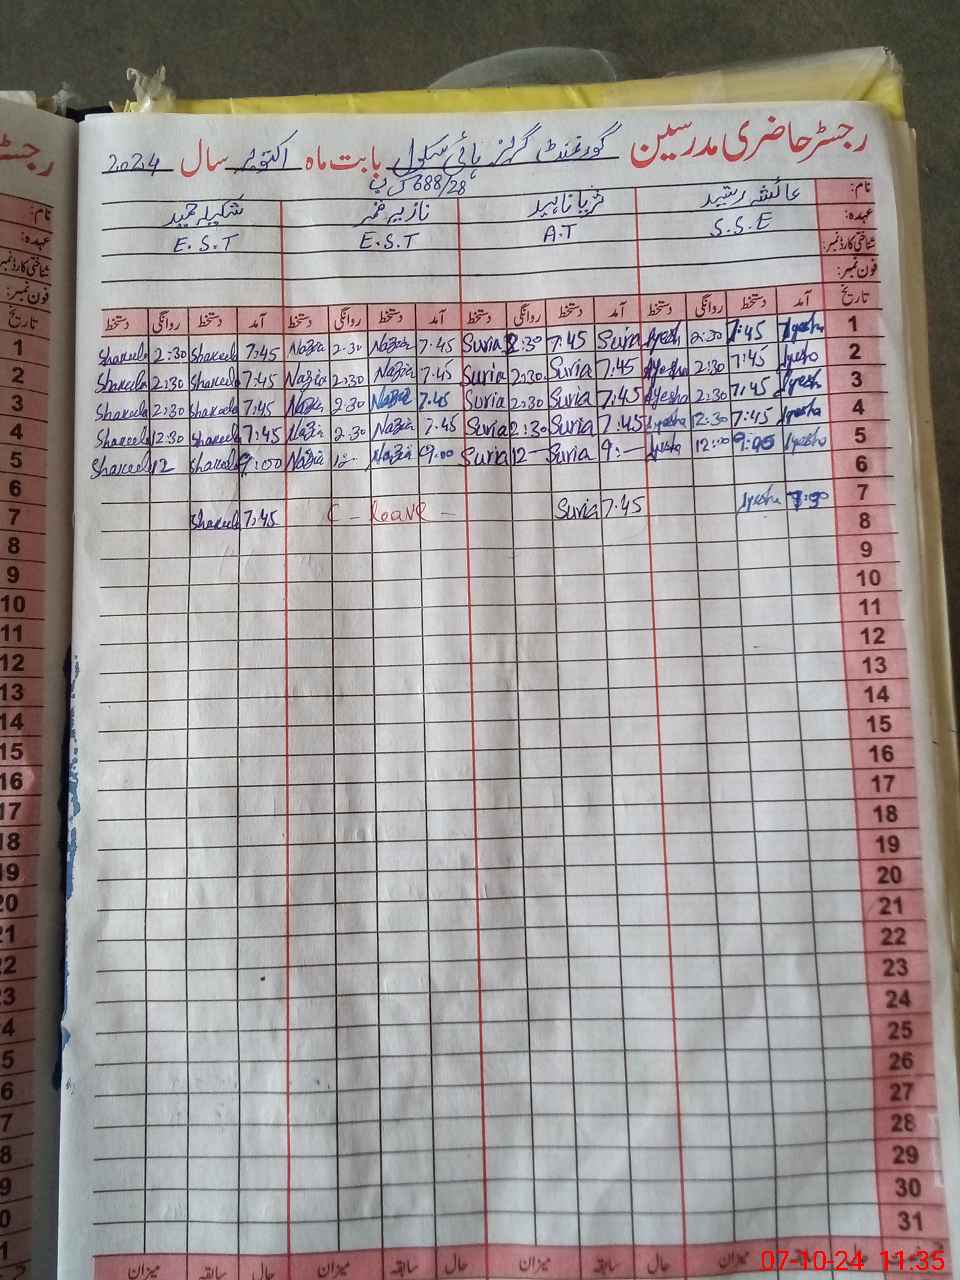 رجسٹر حاضری مدرسین گورنمنٹ گرلز ہائی سکول بابت ماہ اکتوبر سال 2024
688/28 گ ب
نام: عائشہ رشید ثریا ناہید نازیہ شکیلہ حمید
عہدہ: S.S.E A.T E.S.T E.S.T
شناختی کارڈ نمبر:
فون نمبر:
تاریخ آمد دستخط روانگی دستخط آمد دستخط روانگی دستخط آمد دستخط روانگی دستخط آمد دستخط روانگی دستخط
1 Shakeela 2:30 Shakeela 7:45 Nazia 2:30 Nazia 7:45 Suria 2:30 7:45 Suria Ayesha 2:30 7:45 Ayesha 1
2 Shakeela 2:30 Shakeela 7:45 Nazia 2:30 Nazia 7:45 Suria 2:30 Suria 7:45 Ayesha 2:30 7:45 Ayesha 2
3 Shakeela 2:30 Shakeela 7:45 Nazia 2:30 Nazia 7:45 Suria 2:30 Suria 7:45 Ayesha 2:30 7:45 Ayesha 3
4 Shakeela 12:30 Shakeela 7:45 Nazia 2:30 Nazia 7:45 Suria 2:30 Suria 7:45 Ayesha 12:30 7:45 Ayesha 4
5 Shakeela 12 Shakeela 9:00 Nazia 12- Nazia 9:00 Suria 12- Suria 9:- Ayesha 12:00 Ayesha 5
6 6
7 Shakeela 7:45 C - leave - Suria 7:45 Ayesha 7:30 7
8 8
9 9
10 10
11 11
12 12
13 13
14 14
15 15
16 16
17 17
18 18
19 19
20
21
22
23
24
25
26
27
28
29
30
31
حال سابقہ میزان حال سابقہ میزان حال سابقہ میزان
07-10-24 11:35